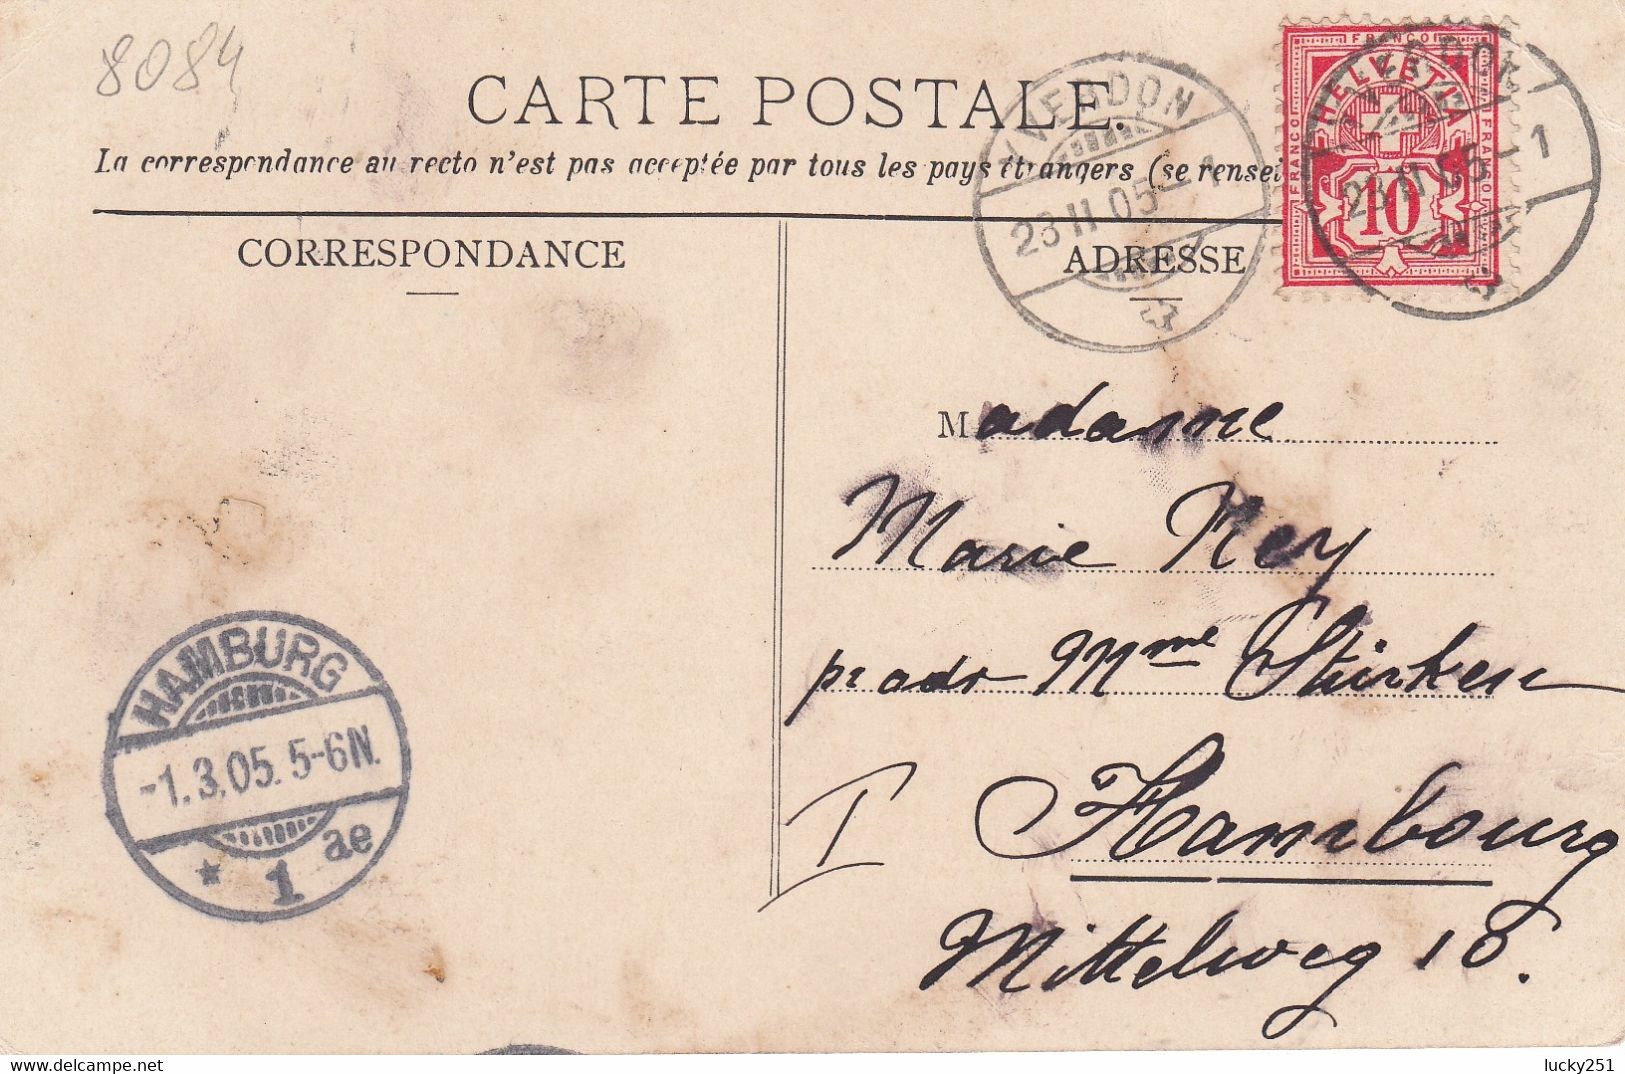 8084
CARTE POSTALE.
La correspondance au recto n'est pas acceptée par tous les pays étrangers (se rensei
CORRESPONDANCE
ADRESSE
YVERDON
28 II 05 - 1
FRANCO
HELVETIA
FRANCO
FRANCO
10
28 II 05 - 1
Madame
Marie Rey
pr adr Mme Stürken
I Hambourg
Mittelweg 18.
HAMBURG
-1.3.05. 5-6N.
* 1 ae
lucky251